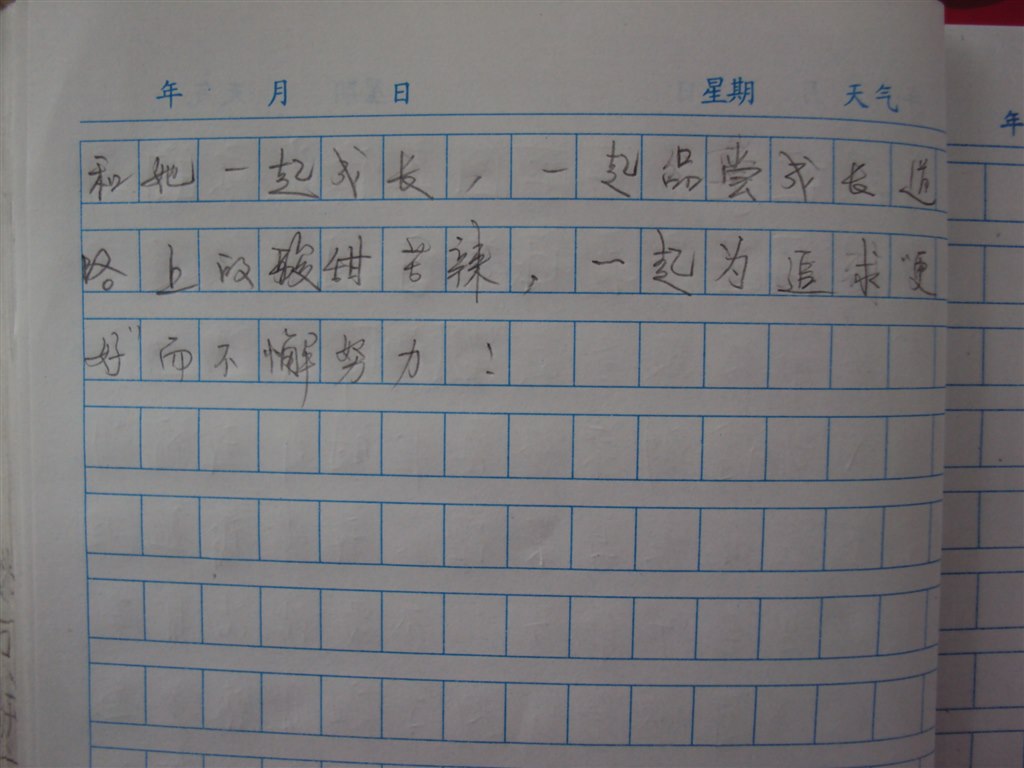 年 月 日 星期 天气
和她一起成长,一起品尝成长道
路上的酸甜苦辣,一起为追求更
好而不懈努力!
年